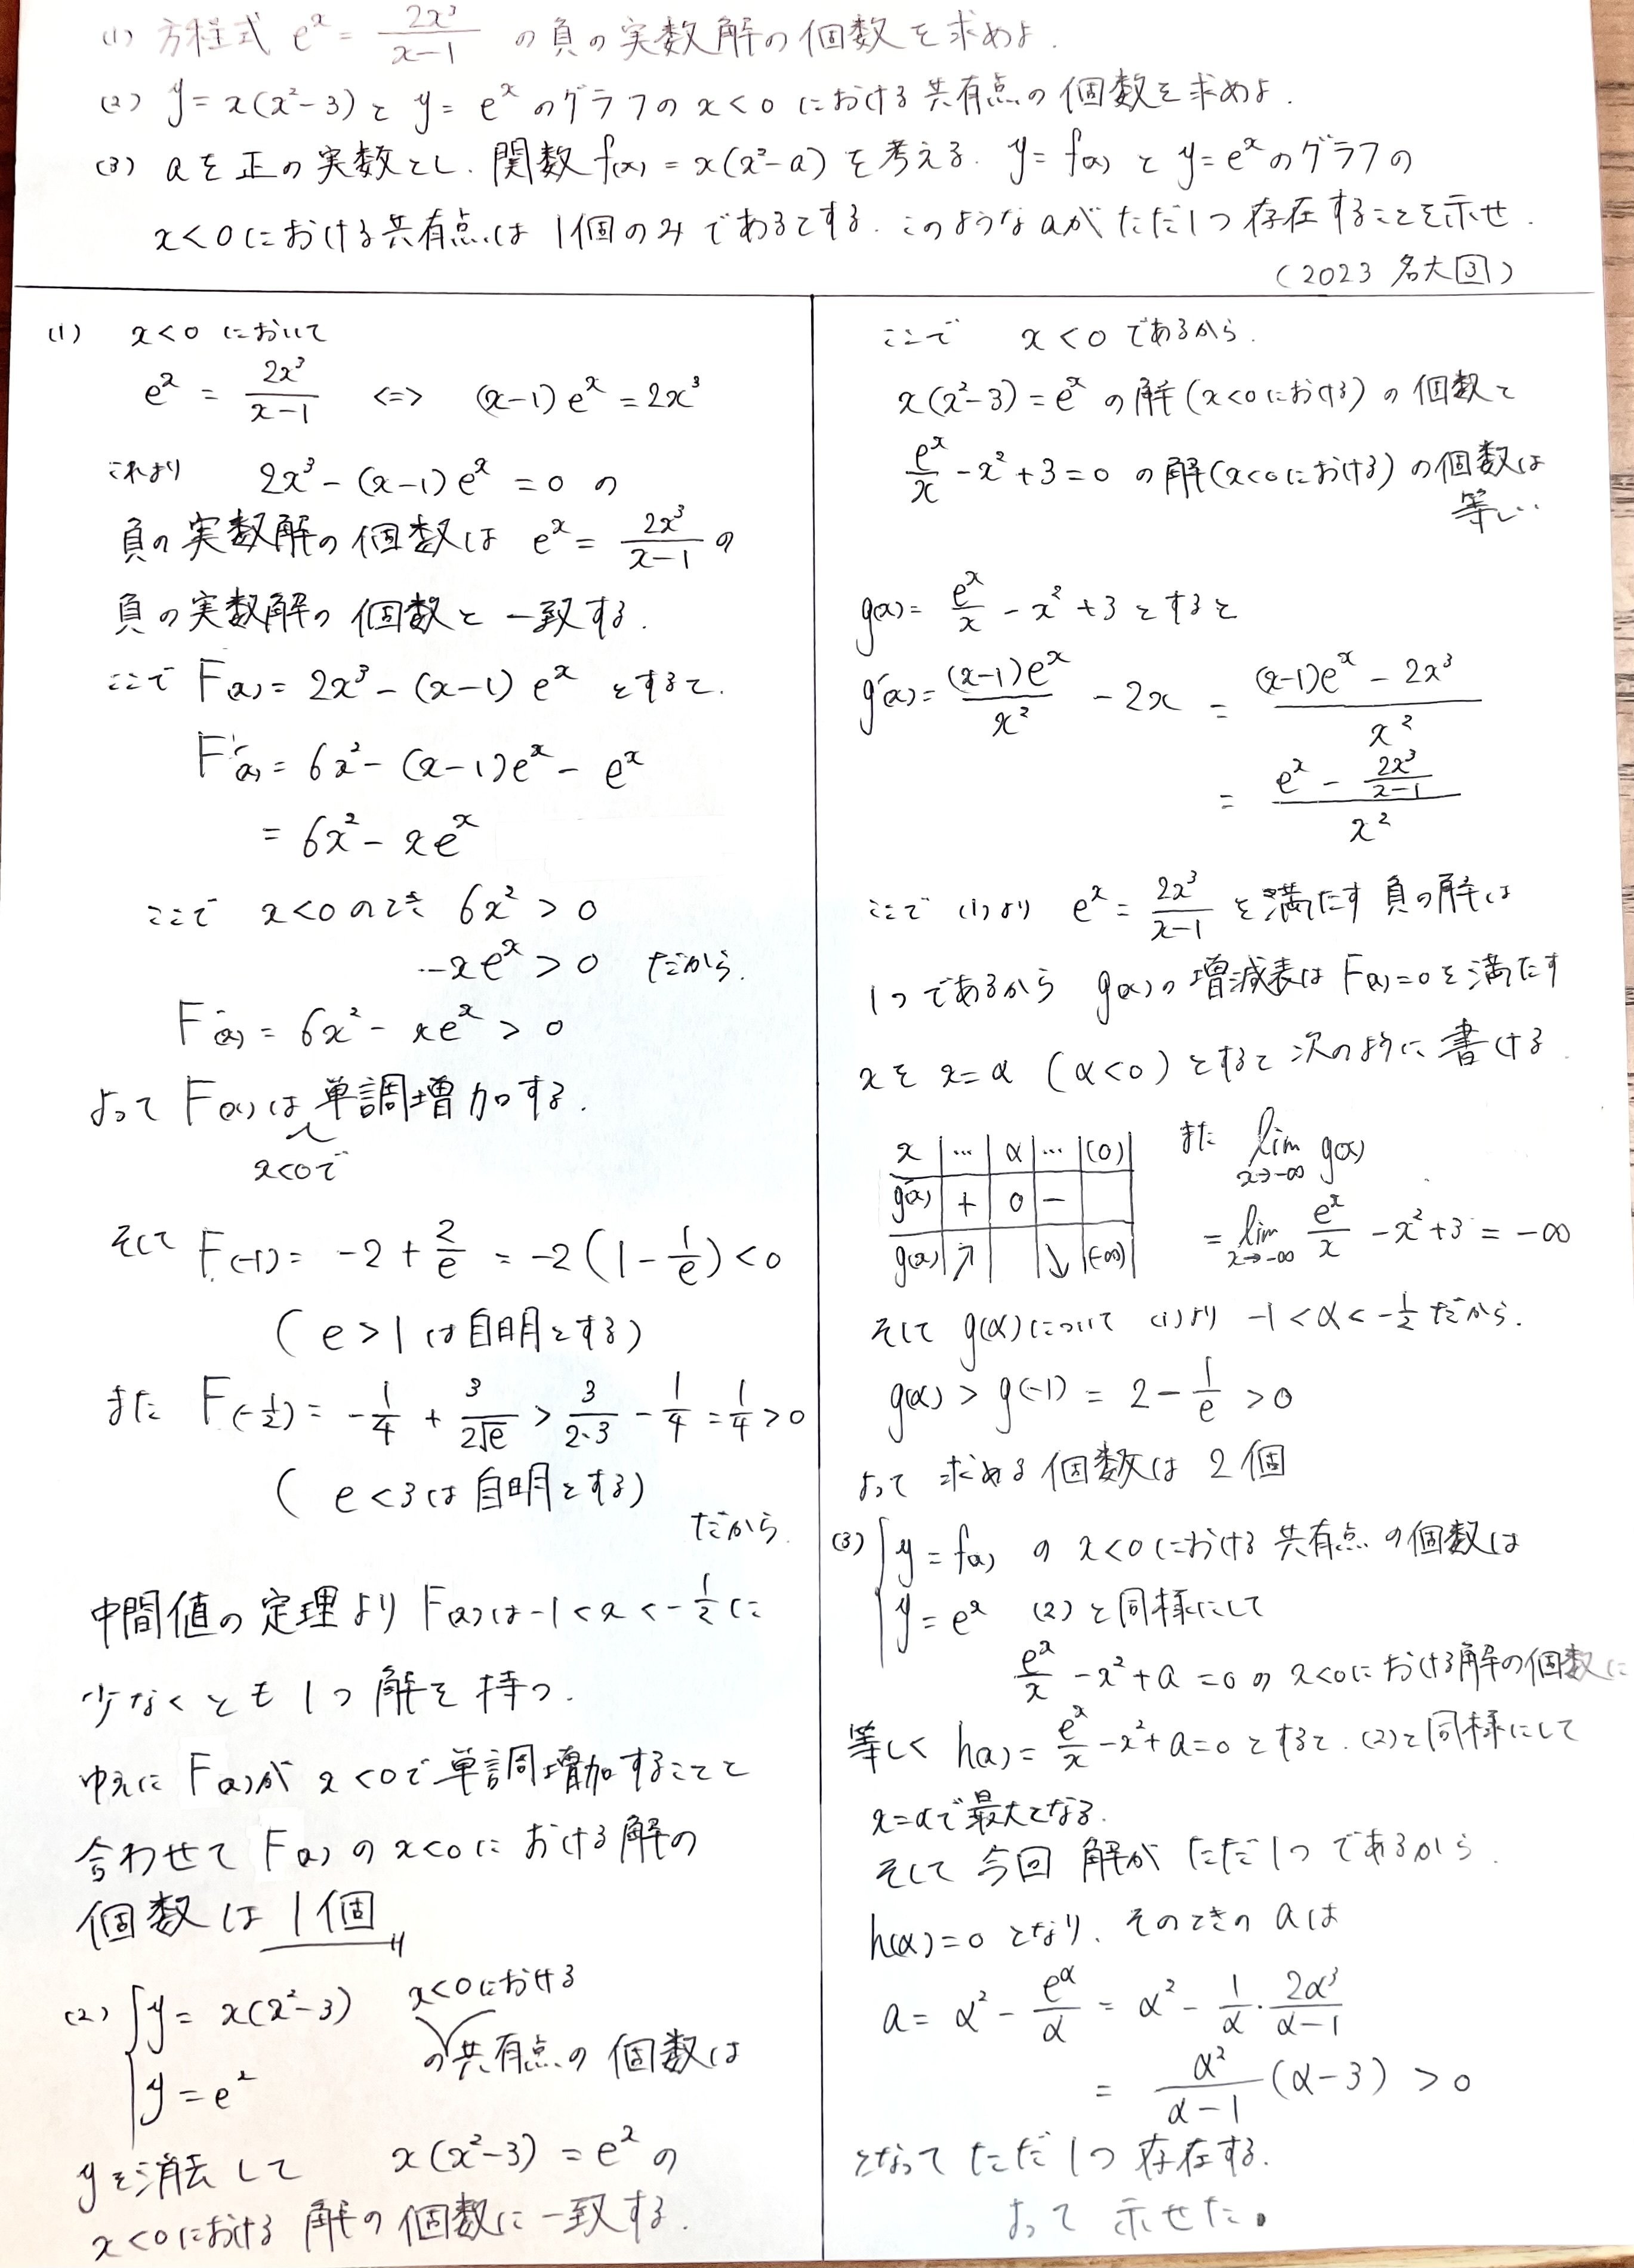 (1) 方程式 e^x = 2x³/(x-1) の負の実数解の個数を求めよ.
(2) y = x(x²-3) と y = e^x のグラフの x<0 における共有点の個数を求めよ.
(3) aを正の実数とし. 関数 f(x) = x(x²-a) を考える. y = f(x) と y=e^x のグラフの
x<0における共有点は 1個のみであるとする. このようなaがただ1つ存在することを示せ.
(2023 名大 3)
(1) x<0 において
e^x = 2x³/(x-1) <=> (x-1)e^x = 2x³
これより 2x³-(x-1)e^x = 0 の
負の実数解の個数は e^x = 2x³/(x-1) の
負の実数解の個数と一致する.
ここで F(x) = 2x³-(x-1)e^x とすると.
F'(x) = 6x²-(x-1)e^x - e^x
= 6x² - xe^x
ここで x<0のとき 6x² > 0
-xe^x > 0 だから.
F'(x) = 6x² - xe^x > 0
よって F(x)は単調増加する.
x<0で
そして F(-1) = -2 + 2/e = -2(1-1/e) < 0
(e>1は自明とする)
また F(-1/2) = -1/4 + 3/(2√e) > 3/(2·3) - 1/4 = 1/4 > 0
(e<3は自明とする)
だから.
中間値の定理より F(x)は -1<x<-1/2 に
少なくとも1つ解を持つ.
ゆえに F(x)が x<0で単調増加することと
合わせて F(x)の x<0における解の
個数は 1個
(2) { y = x(x²-3) x<0における
y = e^x の共有点の個数は
yを消去して x(x²-3) = e^x の
x<0における解の個数に一致する.
ここで x<0であるから.
x(x²-3) = e^x の解(x<0における)の個数と
e^x/x - x² + 3 = 0 の解(x<0における)の個数は
等しい
g(x) = e^x/x - x² + 3 とすると
g'(x) = (x-1)e^x/x² - 2x = ((x-1)e^x - 2x³)/x²
= (e^x - 2x³/(x-1))/x²
ここで (1)より e^x = 2x³/(x-1) を満たす負の解は
1つであるから g(x)の増減表は F(x)=0を満たす
xを x=α (α<0) とすると次のように書ける.
x | … | α | … | (0)
g'(x) | + | 0 | − |
g(x) | ↗ | | ↘ | (-∞)
また lim x→-∞ g(x)
= lim x→-∞ e^x/x - x² + 3 = -∞
そして g(α)について (1)より -1<α<-1/2 だから.
g(α) > g(-1) = 2 - 1/e > 0
よって 求める個数は 2個
(3) { y = f(x) の x<0における共有点の個数は
y = e^x (2)と同様にして
e^x/x - x² + a = 0 の x<0における解の個数に
等しく h(x) = e^x/x - x² + a = 0 とすると. (2)と同様にして
x=αで最大となる.
そして今回 解がただ1つであるから.
h(α) = 0 となり. そのときの a は
a = α² - e^α/α = α² - 1/α · 2α³/(α-1)
= α²/(α-1) (α-3) > 0
となってただ1つ存在する.
よって示せた.